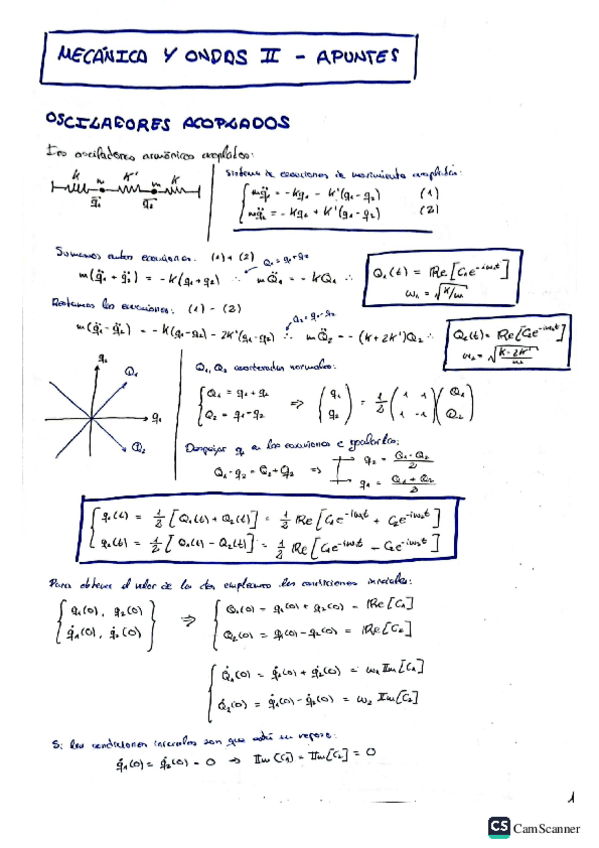 MECÁNICA Y ONDAS II - APUNTES
OSCILADORES ACOPLADOS
Dos osciladores armónicos acoplados:
K m K' m K
q₁ q₂
Sistema de ecuaciones de movimiento acopladas:
mq̈₁ = -Kq₁ - K'(q₁-q₂) (1)
mq̈₂ = -Kq₂ + K'(q₁-q₂) (2)
Sumamos ambas ecuaciones: (1)+(2) Q₁=q₁+q₂
m(q̈₁+q̈₂) = -K(q₁+q₂) ∴ mQ̈₁ = -KQ₁ ∴
Q₁(t) = Re[C₁e^{-iω₁t}]
ω₁ = √(K/m)
Restamos las ecuaciones: (1) - (2) Q₂=q₁-q₂
m(q̈₁-q̈₂) = -K(q₁-q₂) - 2K'(q₁-q₂) ∴ mQ̈₂ = -(K+2K')Q₂ ∴
Q₂(t) = Re[C₂e^{-iω₂t}]
ω₂ = √(K+2K'/m)
q₂ Q₁ q₁ Q₂
Q₁, Q₂ coordenadas normales:
{Q₁ = q₁+q₂ ⇒ (q₁ q₂) = 1/2 (1 1; 1 -1)(Q₁ Q₂)
Q₂ = q₁-q₂
Despejar q₁ en las ecuaciones e igualarlas:
Q₁-q₂ = Q₂+q₂ ⇒ q₂ = (Q₁-Q₂)/2
q₁ = (Q₁+Q₂)/2
q₁(t) = 1/2 [Q₁(t)+Q₂(t)] = 1/2 Re[C₁e^{-iω₁t} + C₂e^{-iω₂t}]
q₂(t) = 1/2 [Q₁(t)-Q₂(t)] = 1/2 Re[C₁e^{-iω₁t} - C₂e^{-iω₂t}]
Para obtener el valor de las dos empleamos las condiciones iniciales:
{q₁(0), q₂(0)} ⇒ {Q₁(0) = q₁(0)+q₂(0) = Re[C₁]
{q̇₁(0), q̇₂(0)} Q₂(0) = q₁(0)-q₂(0) = Re[C₂]
Q̇₁(0) = q̇₁(0)+q̇₂(0) = ω₁ Im[C₁]
Q̇₂(0) = q̇₁(0)-q̇₂(0) = ω₂ Im[C₂]
Si las condiciones iniciales son que está en reposo:
q̇₁(0) = q̇₂(0) = 0 ⇒ Im[C₁] = Im[C₂] = 0
1
CS CamScanner